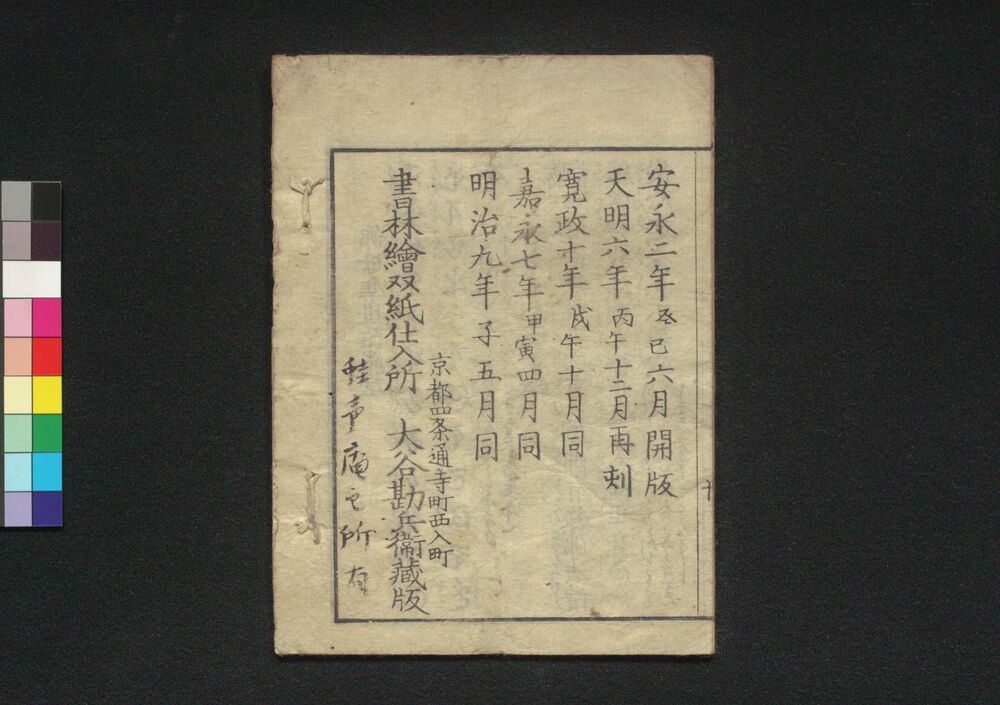 安永二年癸巳六月開版
天明六年丙午十二月再刻
寛政十年戊午十月同
嘉永七年甲寅四月同
明治九年子五月同
京都四条通寺町西入町
書林繪双紙仕入所 大谷勘兵衞藏版
庵之所有